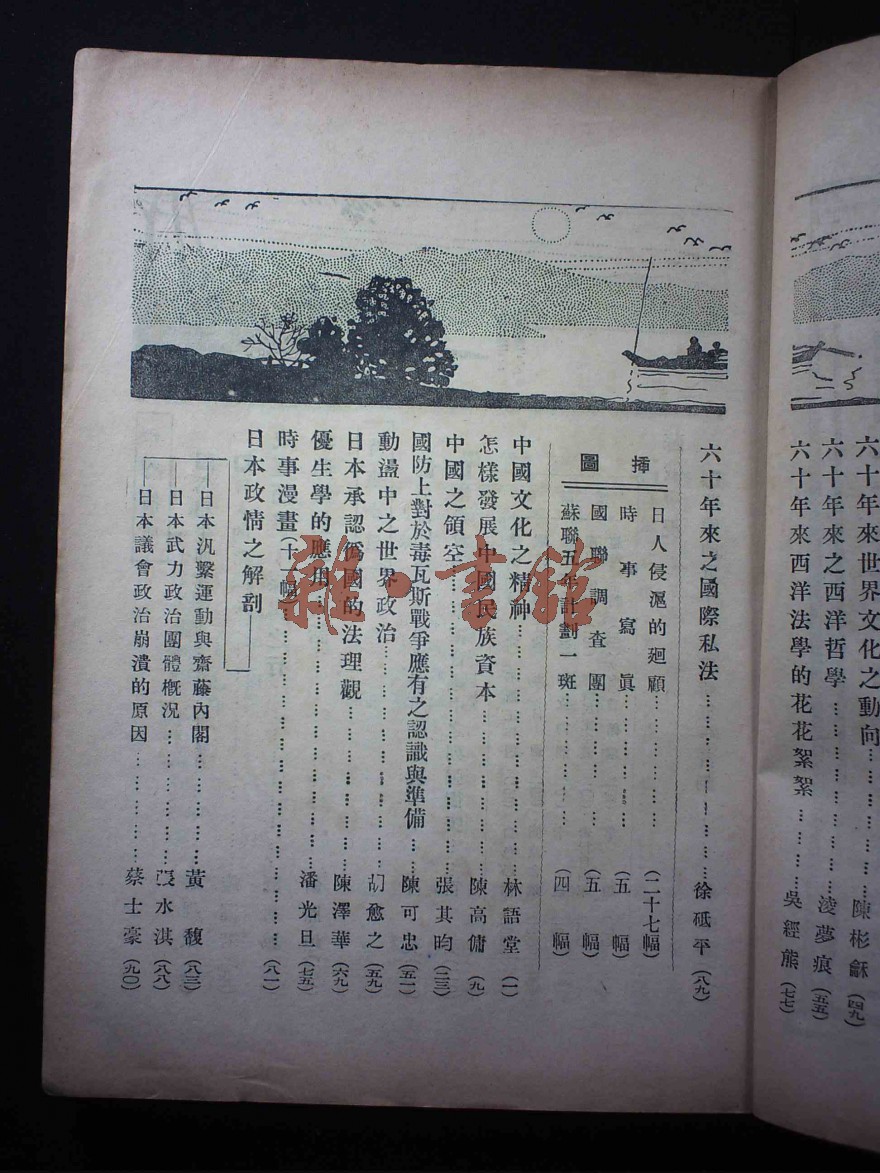 六十年來世界文化之動向……陳彬龢(四九)
六十年來之西洋哲學……淩夢痕(五五)
六十年來西洋法學的花花絮絮……吳經熊(七七)
六十年來之國際私法……徐砥平(八九)
插圖
日人侵滬的廻顧……(二十七幅)
時事寫眞……(五幅)
國聯調查團……(五幅)
蘇聯五年計劃一斑……(四幅)
中國文化之精神……林語堂(一)
怎樣發展中國民族資本……陳高傭(九)
中國之領空……張其昀(二三)
國防上對於毒瓦斯戰爭應有之認識與準備……陳可忠(五一)
動盪中之世界政治……胡愈之(五九)
日本承認僞國的法理觀……陳澤華(六九)
優生學的應用……潘光旦(七五)
時事漫畫(十一幅)……(八一)
日本政情之解剖
日本汎繫運動與齋藤內閣……黃馥(八三)
日本武力政治團體概況……水淇(八八)
日本議會政治崩潰的原因……蔡士豪(九〇)
雜·書館